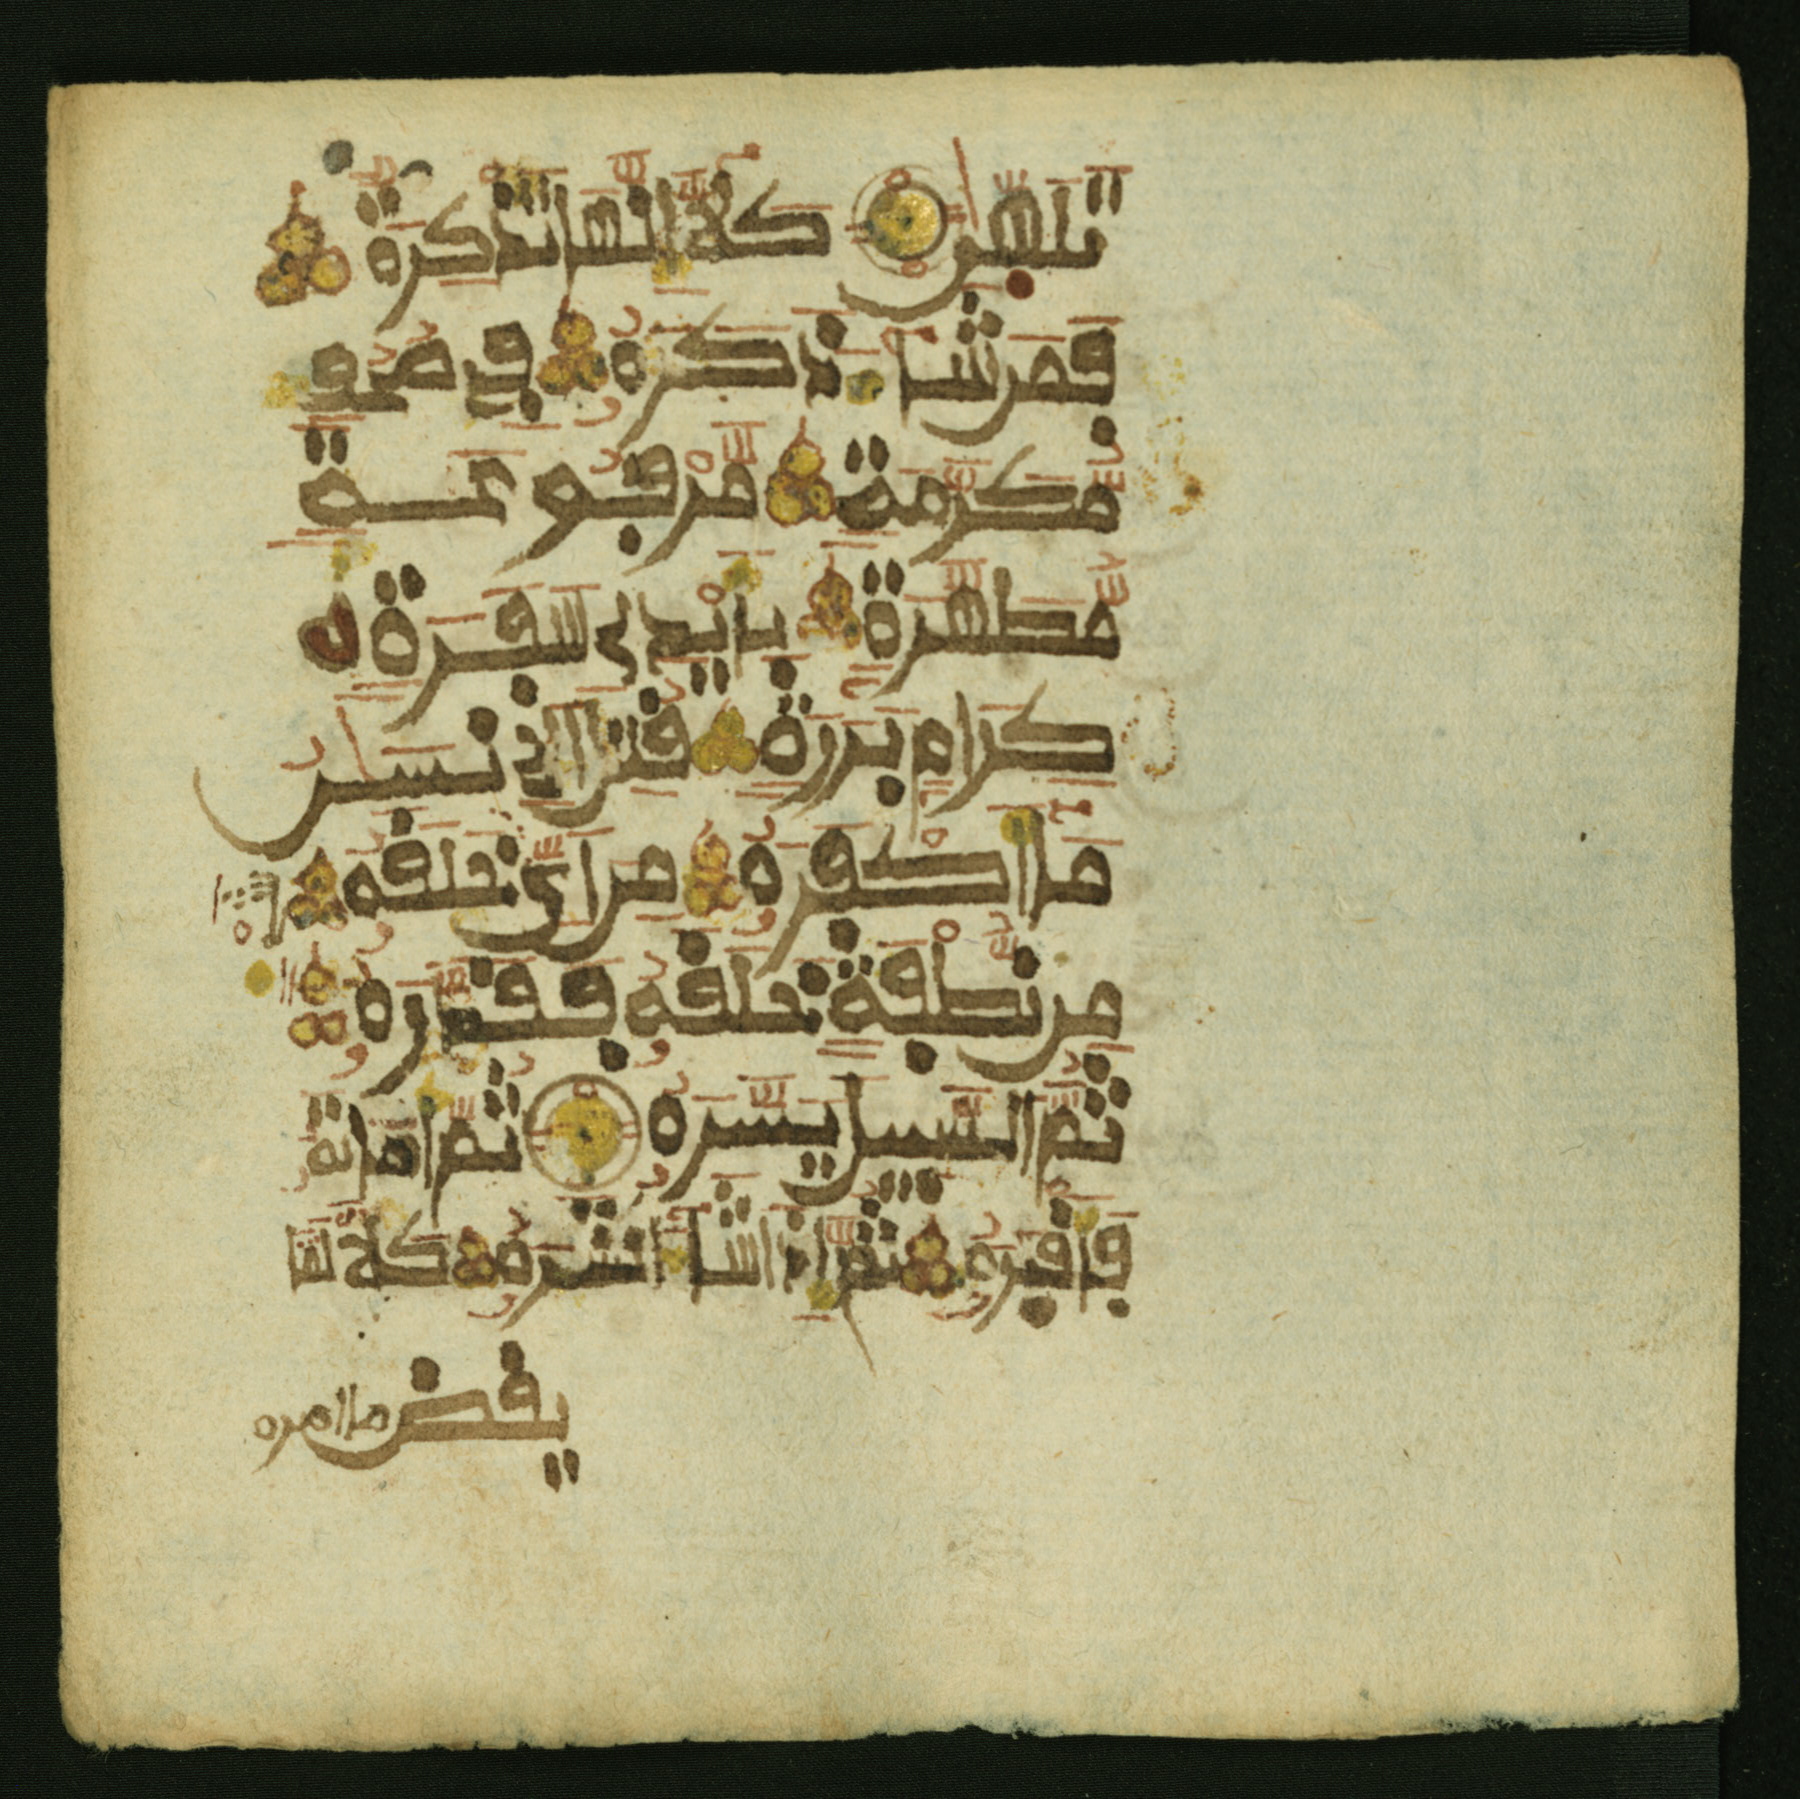 تلهى كلا انها تذكرة
فمن شا ذكره في صحف
مكرمة مرفوعة
مطهرة بايدي سفرة
كرام بررة قتل الانسن
ما اكفره من اي خلقه
من نطفة خلقه فقدره
ثم السبيل يسره ثم اماته
فاقبره ثم اذا شا انشره كلا لما
يقض ما امره